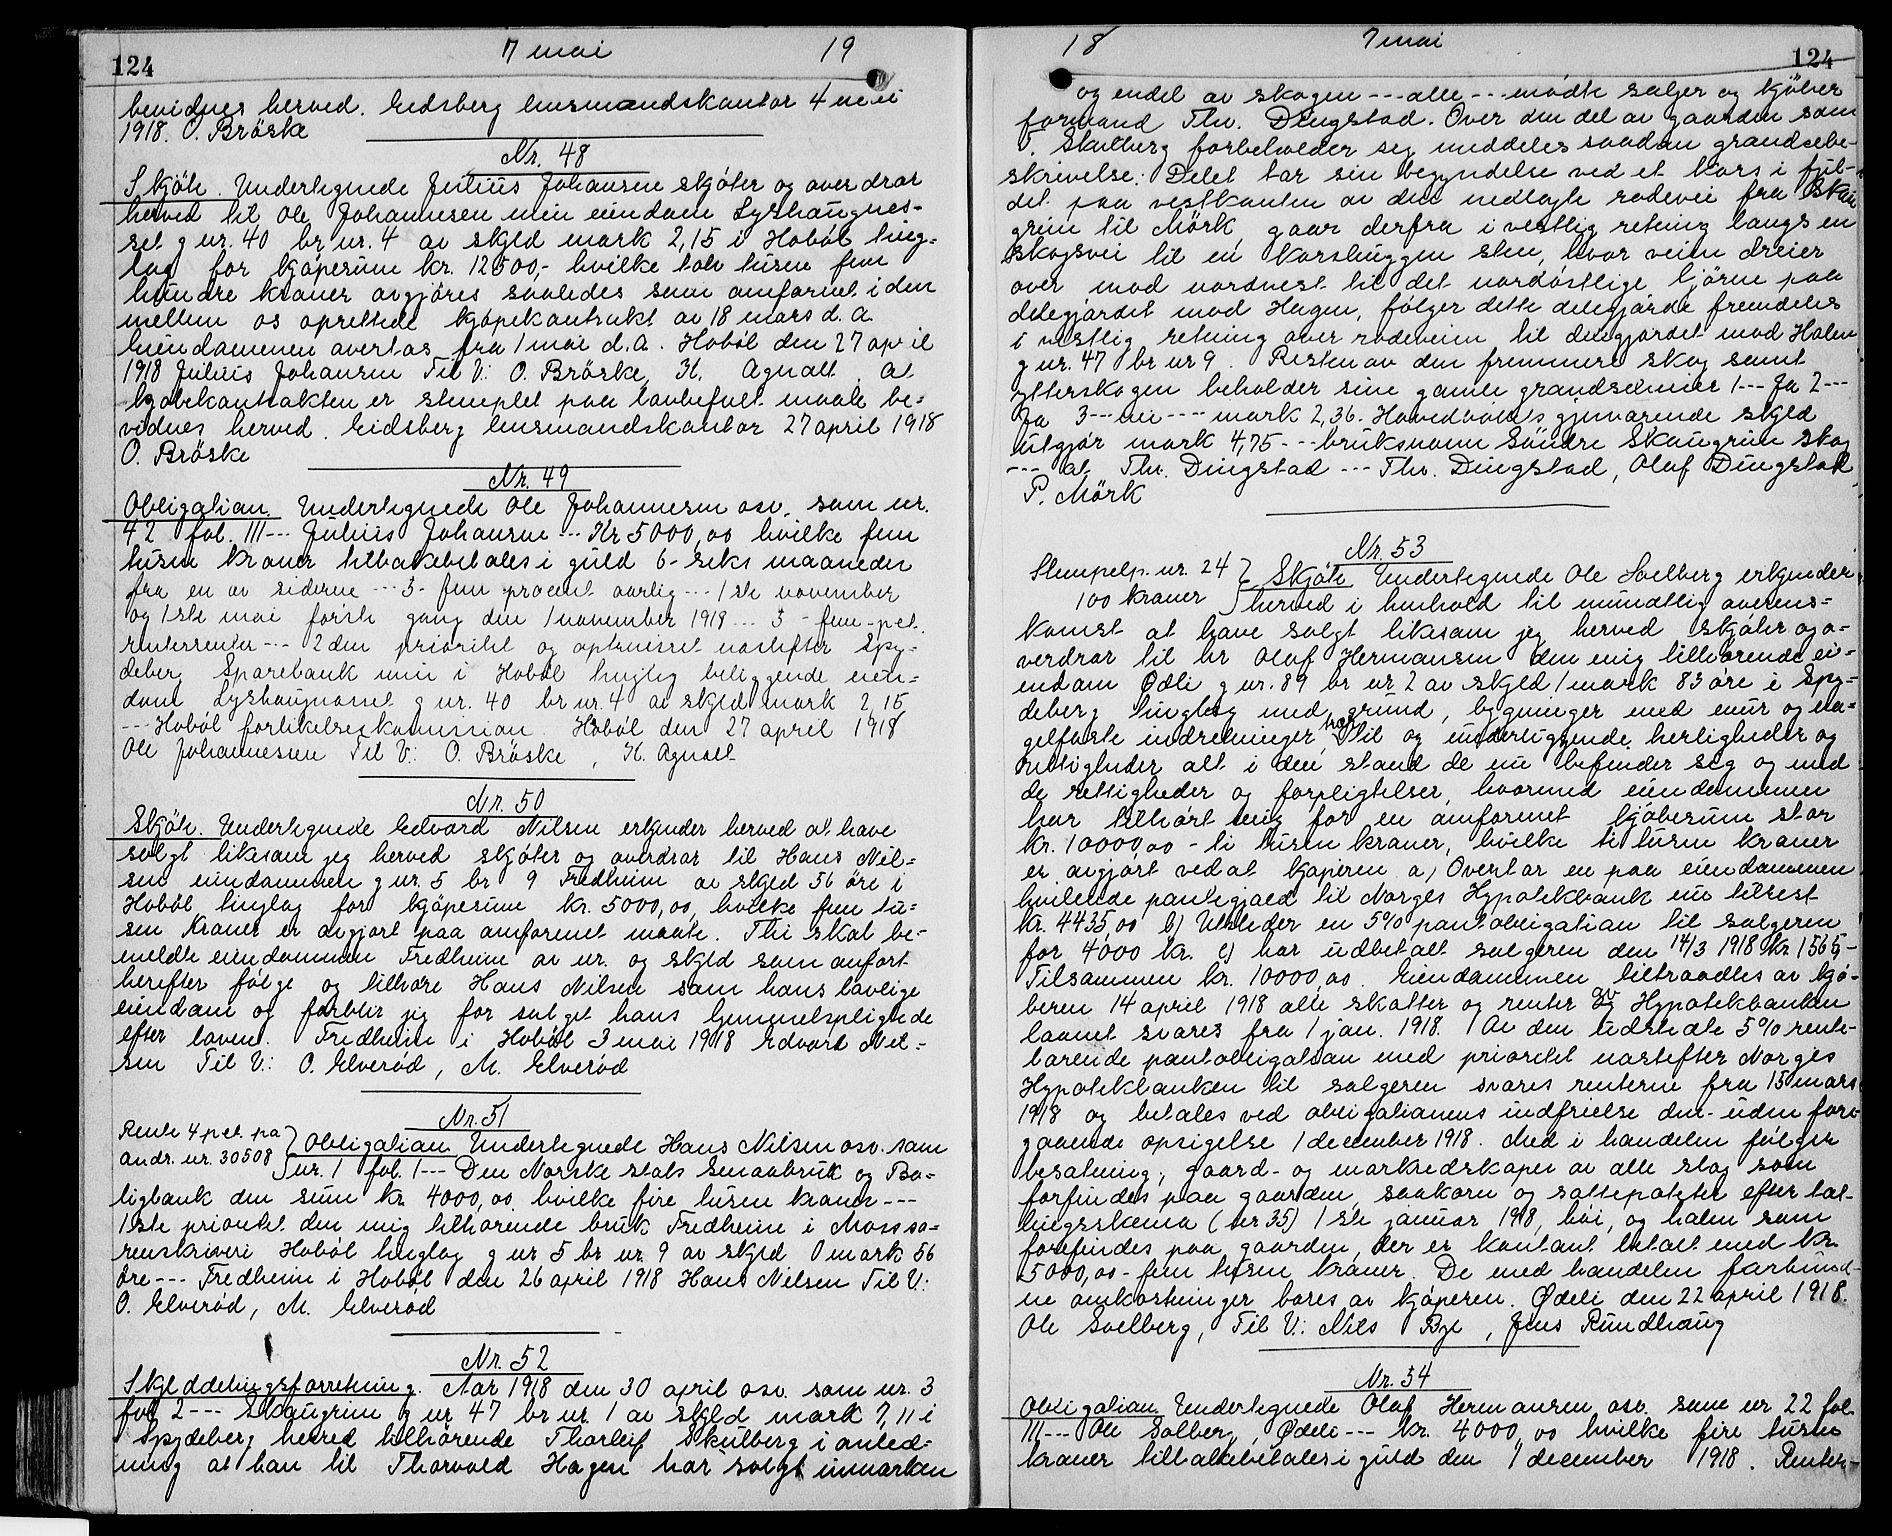 124 7 mai 19
bevidnes herved. Eidsberg lensmandskontor 4 mai
1918. O. Bröske
Nr. 48
Skjöte. Undertegnede Julius Johansen skjöter og overdrar
herved til Ole Johannesen min eiendom Lyshaugnes-
set g nr. 40 br nr. 4 av skyld mark 2,15 i Hoböl ting-
lag for kjöpesum kr. 12500,- hvilke tolv tusen fem
hundre kroner avgjöres saaledes som omforent i den
mellem os oprettede kjöpekontrakt av 18 mars d. a.
Eiendommen overtas fra 1 mai d. a. Hoböl den 27 april
1918 Julius Johansen Til V: O. Bröske, K. Agnalt. at
kjöbekontrakten er stemplet paa lovbefalt maate be-
vidnes herved. Eidsberg lensmandskontor 27 april 1918
O. Bröske
Nr. 49
Obligation. Undertegnede Ole Johannesen osv. som nr.
42 fol. III--- Julius Johansen --- Kr 5000,00 hvilke fem
tusen kroner tilbakebetales i guld 6- seks maaneder
fra en av siderne --- 5- fem procent aarlig --- 1ste november
og 1ste mai förste gang den 1 november 1918 --- 5 - fem - pct.
rentersrenter --- 2den prioritet og optrinsret næstefter Spy-
deberg Sparebank min i Hoböl tinglag beliggende eien-
dom Lyshaugneset g nr. 40 br nr. 4 av skyld mark 2,15
--- Hoböl forlikelseskommission. Hoböl den 27 april 1918
Ole Johannesen Til V: O. Bröske, K. Agnalt
Nr. 50
Skjöte. Undertegnede Edvard Nilsen erkjender herved at have
solgt liksom jeg herved skjöter og overdrar til Hans Nil-
sen eiendommen g nr. 5 br 9 Fredheim av skyld 56 öre i
Hoböl tinglag for kjöpesum kr. 5000,00, hvilke fem tu-
sen kroner er avgjort paa omforenet maate. Thi skal be-
meldte eiendommen Fredheim av nr. og skyld som anfört
herefter fölge og tilhöre Hans Nilsen som hans lovlige
eiendom og forblir jeg for salget hans hjemmelspligtede
efter loven. Fredheim i Hoböl 3 mai 1918 Edvart Nil-
sen Til V: O. Elveröd, M. Elveröd
Nr. 51
Rente 4 pct. pa
andr. nr. 30508
Obligation Undertegnede Hans Nilsen osv. som
nr. 1 fol. 1--- Den Norske stats Smaabruk og Bo-
ligbank den sum kr. 4000,00 hvilke fire tusen kroner ---
1ste prioritet den mig tilhörende bruk Fredheim i Moss so-
renskriveri Hoböl tinglag g nr 5 br nr. 9 av skyld 0 mark 56
öre --- Fredheim i Hoböl den 26 april 1918 Hans Nilsen Til V:
O. Elveröd, M. Elveröd
Nr. 52
Skylddelingsforretning. Aar 1918 den 30 april osv. som nr. 3
fol 2 --- Skaugrim g nr 47 br nr. 1 av skyld mark 7,11 i
Spydeberg herred tilhörende Thorleif Skulberg i anled-
ning at han til Thorvald Hagen har solgt inmarken
18 7 mai 124
og endel av skogen --- alle --- mödte sælger og kjöber
formand Thv. Dingstad. Over den del av gaarden som
Skulberg forbeholder seg meddeles saadan grændsebe-
skrivelse: Delet tar sin begyndelse ved et kors i fjel-
det paa vestkanten av den nedlagte rodevei fra Skau
grim til Mörk gaar derfra i vestlig retning langs en
skogsvei til en korshuggen sten, hvor veien dreier
over mod nordvest til det nordöstlige hjörne paa
delegjærdet mod Hagen, fölger dette delegjærde fremdeles
i vestlig retning over rodeveien til delegjærdet mod Holen
g nr. 47 br nr 9. Resten av den fremmere skog samt
ytterskogen beholder sine gamle grændselinier 1 --- Ja 2 ---
Ja 3 --- nei ---- mark 2,36. Hovedbölets gjenværende skyld
utgjör mark 4,75 --- bruksnavn Söndre Skaugrim skog
--- at Thv. Dingstad --- Thv. Dingstad, Olaf Dingstad
P. Mörk
Nr. 53
Stempelp. nr. 24
100 kroner
Skjöte Undertegnede Ole Solberg erkjender
herved i henhold til mundtlig overens-
komst at have solgt liksom jeg herved skjöter og o-
verdrar til hr Olaf Hermansen den mig tilhörende ei-
endom Ödeli g nr. 89 br nr 2 av skyld 1 mark 83 öre i Spy-
deberg tinglag med grund, bygninger med mur og na-
gelfaste indretninger, hær til og underliggende herligheder og
rettigheder alt i den stand de nu befinder seg og med
de rettigheder og forpligtelser, hvormed eiendommen
har tilhört mig for en omforenet kjöbesum stor
kr. 10000,00 - ti tusen kroner, hvilke ti tusen kroner
er avgjört ved at kjöperen a) Overtar en paa eiendommen
hvilende pantegjæld til Norges Hypotekbank nu tilrest
kr. 4435,00 b) Utsteder en 5% pantobligation til sælgeren
for 4000 kr. c) har udbetalt sælgeren den 14/3 1918 kr. 1565,-
Tilsammen kr. 10000,00. Eiendommen tiltraadtes av kjö-
beren 14 april 1918 alle skatter og renter av Hypotekbanken
laanet svares fra 1 jan. 1918. Av den udstedte 5% rente-
bærende pantobligation med prioritet næstefter Norges
Hypotekbanken til sælgeren svares renterne fra 15 mars
1918 og betales ved obligationens indfrielse den- uden fore-
gaaende opsigelse 1 december 1918. Med i handelen fölger
besætning, gaard- og markredskaper av alle slag som
forfindes paa gaarden, saakorn og sættepoteter efter tæl-
lingsskema (nr 35) 1ste januar 1918, höi, og halm som
forefindes paa gaarden, der er kontant betalt med kr.
5000,00- fem tusen kroner. De med handelen forbund-
ne omkostninger bæres av kjöperen. Ödeli den 22 april 1918.
Ole Solberg, Til V: Nils Bye, Jens Rundhaug
Nr. 54
Obligation Undertegnede Olaf Hermansen osv. som nr 22 fol
III --- Ole Solberg, Ödeli --- kr. 4000,00 hvilke fire tusen
kroner tilbakebetales i guld den 1 december 1918. Renter-